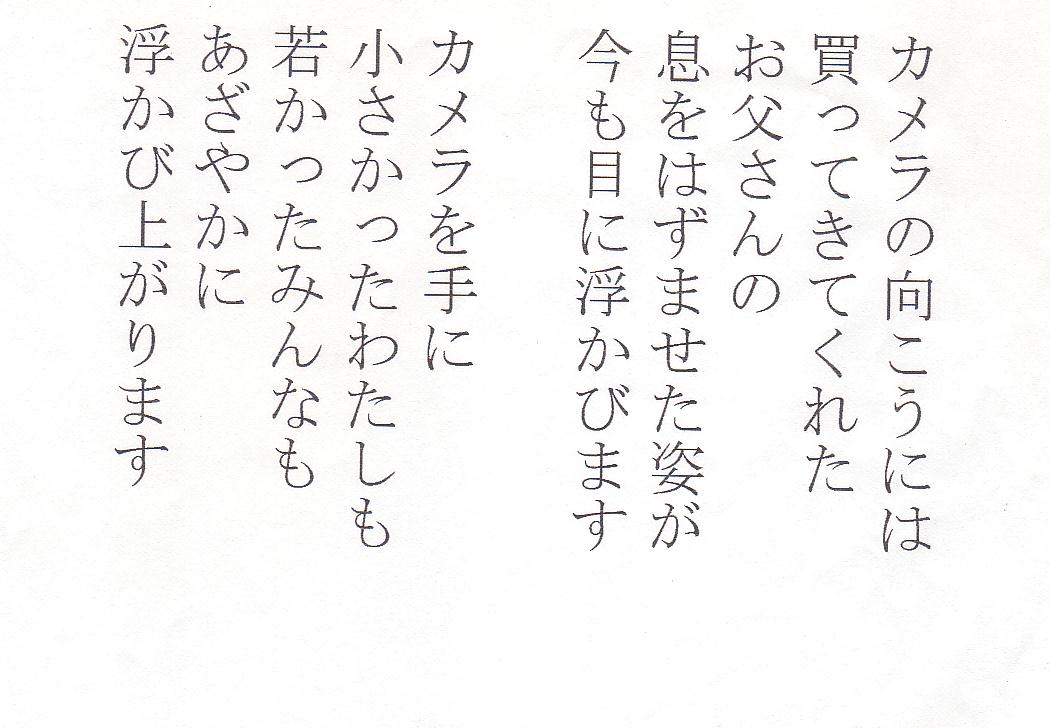 カメラの向こうには
買ってきてくれた
お父さんの
息をはずませた姿が
今も目に浮かびます
カメラを手に
小さかったわたしも
若かったみんなも
あざやかに
浮かび上がります